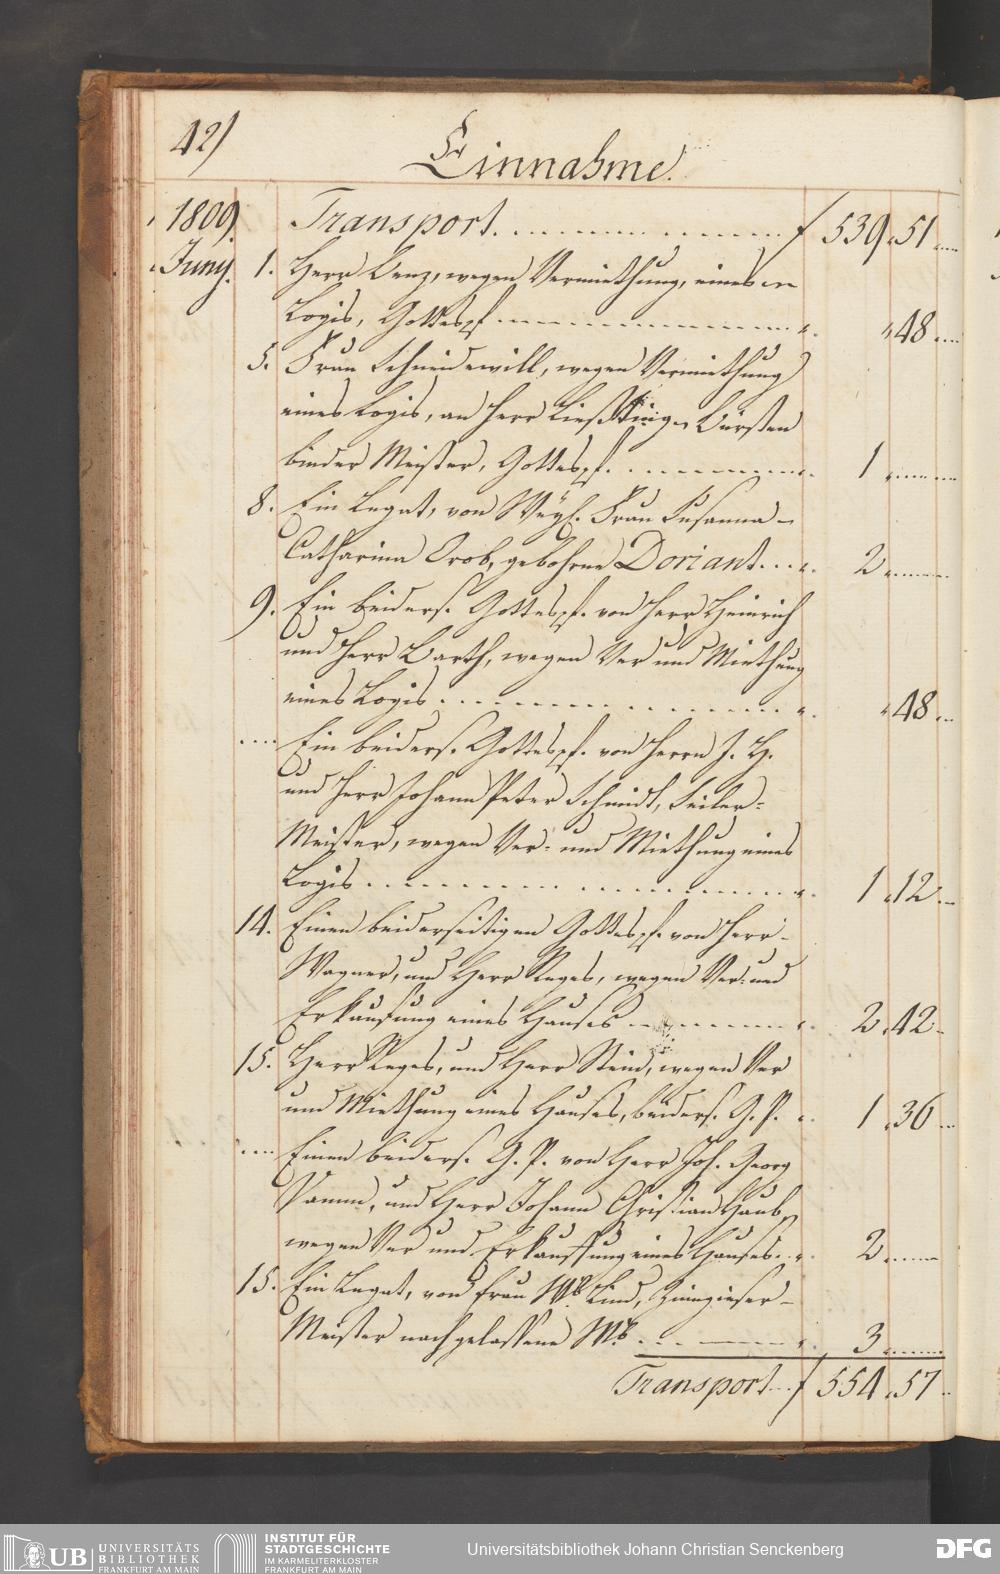 42)
Einnahme.
1809. Transport. f 539 51
Juny. 1. Herr Lenz, wegen Vermiethung, eines
Logis, Gottespf. 48
5. Frau Schneidewill, wegen Vermiethung
eines Logis, an Herr Bürsten
binder Meister, Gottespf. 1
8. Ein Legat, von Weyl. Frau Susanna
Catharina Orob, gebohrne Doriant. 2
9. Ein beiders. Gottespf. von Herr Heinrich
und Herr Barth, wegen Ver und Miethung
eines Logis 48
Ein beiders. Gottespf. von Herrn J. H.
und Herr Johann Peter Schmidt, Seiler-
Meister, wegen Ver- und Miethung eines
Logis 1 12
14. Einen beiderseitigen Gottespf. von Herr
Wagner, und Herr Reges, wegen Ver- und
Erkaufung eines Hauses 2 42
15. Herr Reges, und Herr Stein, wegen Ver
und Miethung eines Hauses, beiders. G. P. 1 36
Einen beiders. G. P. von Herr Joh. Georg
und Herr Johann Christian Haub,
wegen Ver und Erkauffung eines Hauses. 2
15. Ein Legat, von Frau Wb. Lind, Zinngieser-
Meister nachgelassene Wb. 3
Transport f 554 57
UB UNIVERSITÄTS
BIBLIOTHEK
FRANKFURT AM MAIN
INSTITUT FÜR
STADTGESCHICHTE
IM KARMELITERKLOSTER
FRANKFURT AM MAIN
Universitätsbibliothek Johann Christian Senckenberg
DFG